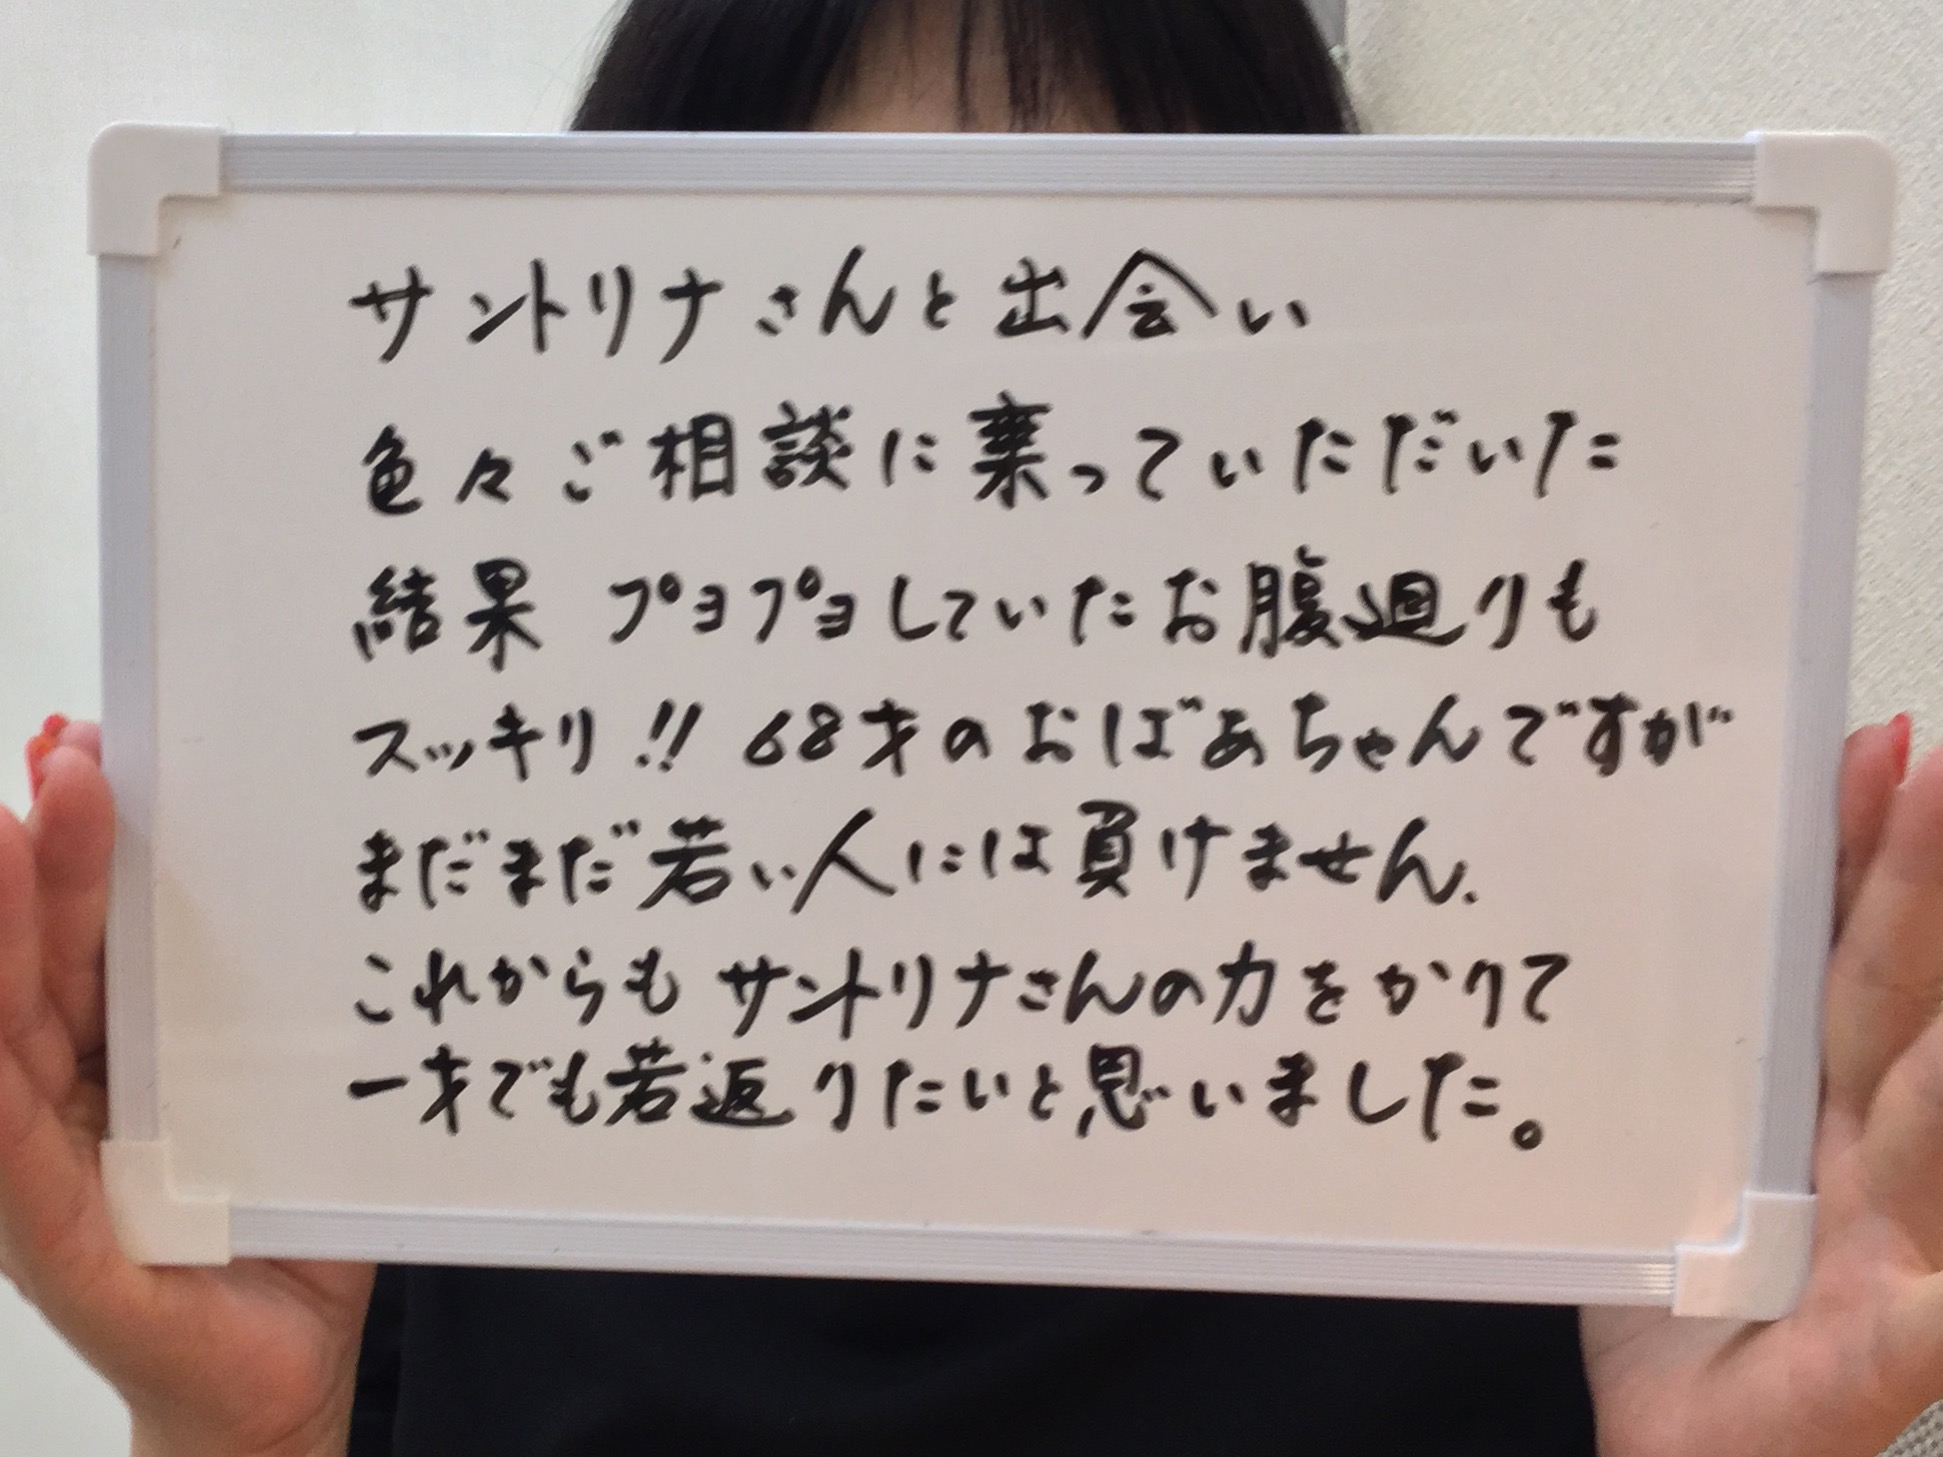 サントリナさんと出会い
色々ご相談に乗っていただいた
結果 プヨプヨしていたお腹廻りも
スッキリ!! 68才のおばあちゃんですが
まだまだ若い人には負けません.
これからもサントリナさんの力をかりて
一才でも若返りたいと思いました。